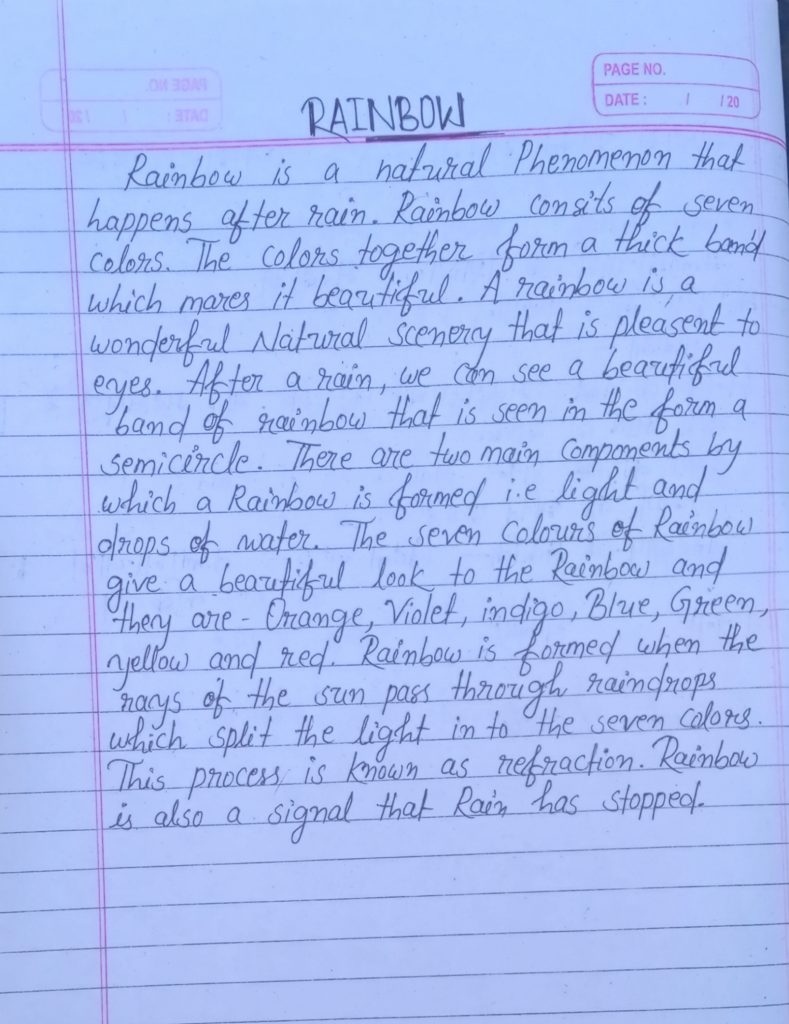 PAGE NO.
DATE : / / 20
RAINBOW
Rainbow is a natural Phenomenon that
happens after rain. Rainbow consits of seven
colors. The colors together form a thick band
which mares it beautiful. A rainbow is a
wonderful Natural scenery that is pleasent to
eyes. After a rain, we can see a beautiful
band of rainbow that is seen in the form a
semicircle. There are two main components by
which a Rainbow is formed i.e light and
drops of water. The seven colours of Rainbow
give a beautiful look to the Rainbow and
they are - Orange, Violet, indigo, Blue, Green,
yellow and red. Rainbow is formed when the
rays of the sun pass through raindrops
which split the light in to the seven colors.
This process is known as refraction. Rainbow
is also a signal that Rain has stopped.